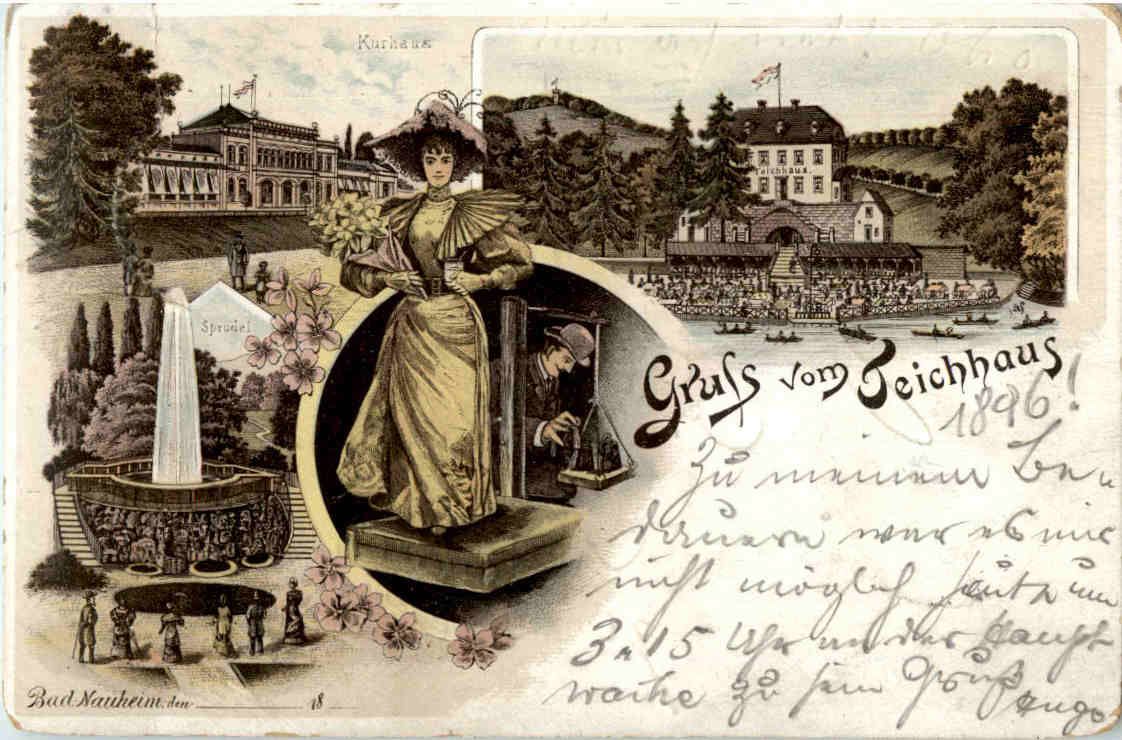 Kurhaus
Teichhaus.
Sprudel
Gruss vom Teichhaus
1896!
Zu meinem Be-
dauern war es mir
nicht möglich heute um
3.15 Uhr an der Haupt
wache zu sein Gruß
Hugo
Bad Nauheim, den 18